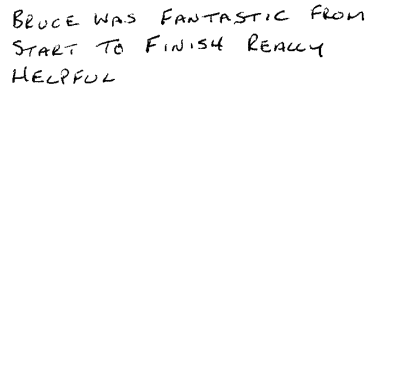 BRUCE WAS FANTASTIC FROM
START TO FINISH REALLY
HELPFUL